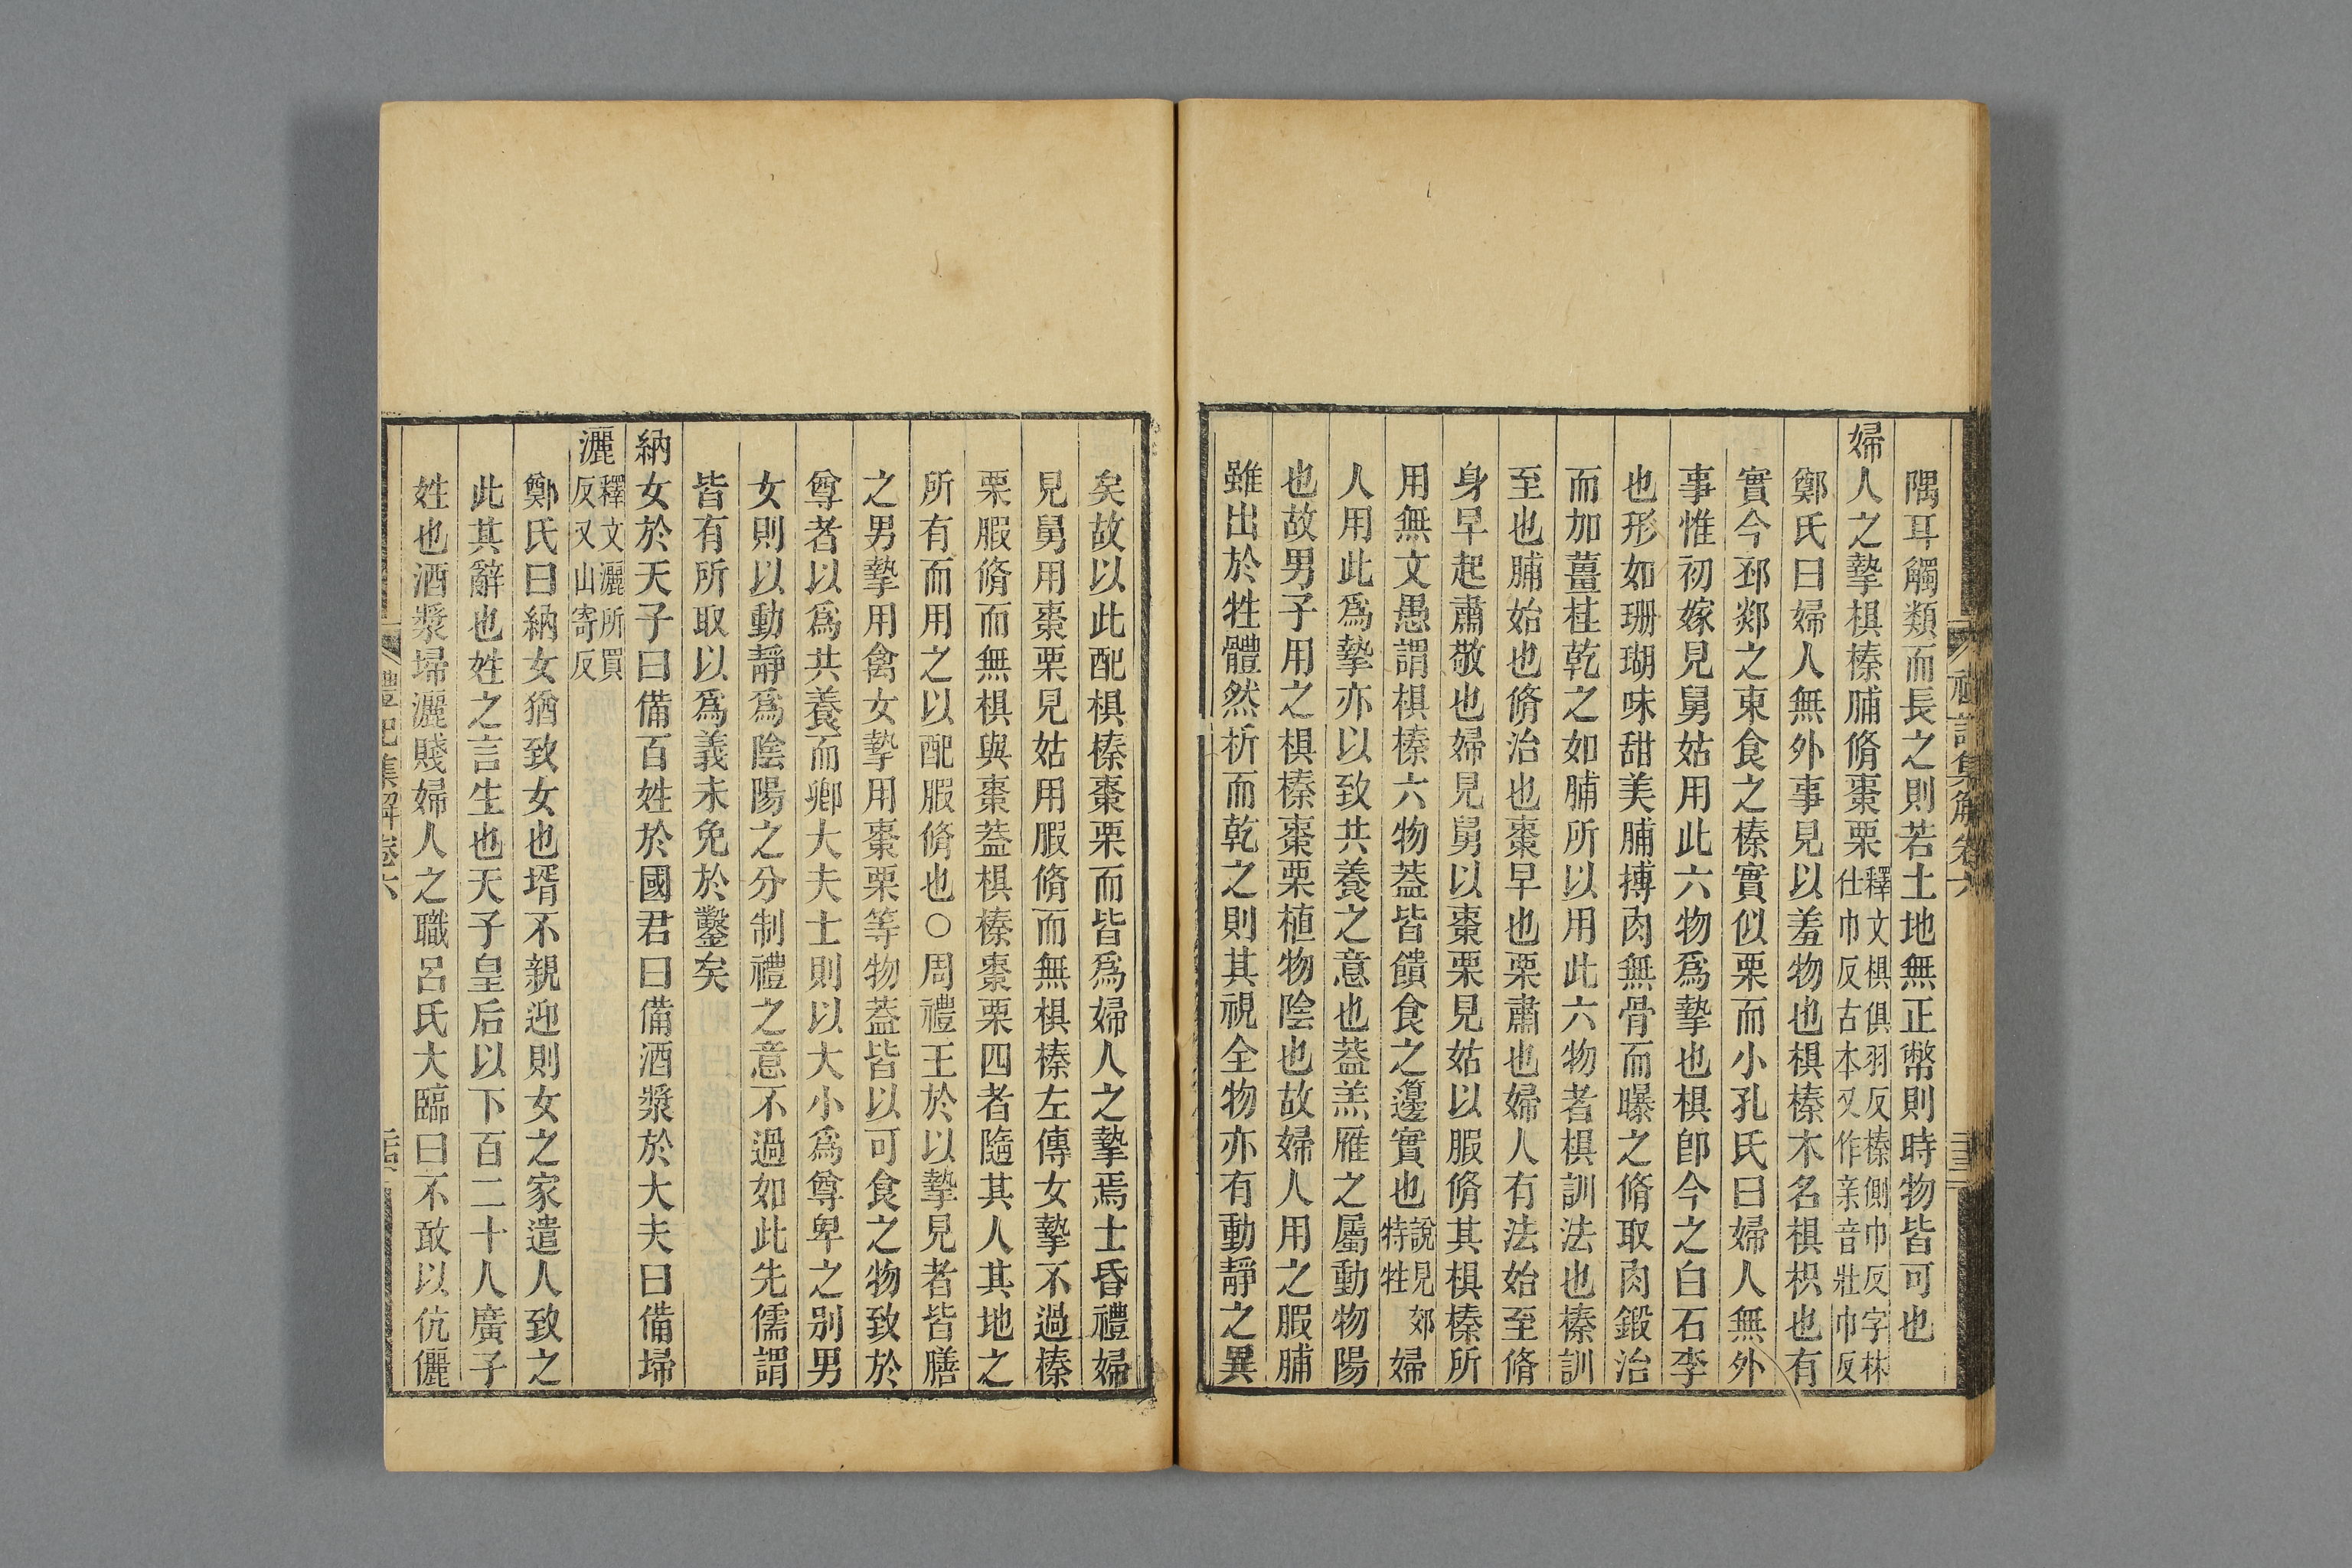 禮記集解卷六
隅耳觸類而長之則若土地無正幣則時物皆可也
婦人之摯椇榛脯脩棗栗釋文椇俱羽反榛側巾反字林仕巾反古本又作亲音壯巾反
鄭氏曰婦人無外事見以羞物也椇榛木名椇枳也有
實今邳郯之東食之榛實似栗而小孔氏曰婦人無外
事惟初嫁見舅姑用此六物爲摯也椇卽今之白石李
也形如珊瑚味甜美脯搏肉無骨而曝之脩取肉鍛治
而加薑桂乾之如脯所以用此六物者椇訓法也榛訓
至也脯始也脩治也棗早也栗肅也婦人有法始至脩
身早起肅敬也婦見舅以棗栗見姑以腶脩其椇榛所
用無文愚謂椇榛六物蓋皆饋食之籩實也說見郊特牲婦
人用此爲摯亦以致共養之意也蓋羔雁之屬動物陽
也故男子用之椇榛棗栗植物陰也故婦人用之腶脯
雖出於牲體然析而乾之則其視全物亦有動靜之異
矣故以此配椇榛棗栗而皆爲婦人之摯焉士昏禮婦
見舅用棗栗見姑用腶脩而無椇榛左傳女摯不過榛
栗腶脩而無椇與棗蓋椇榛棗栗四者隨其人其地之
所有而用之以配腶脩也○周禮王於以摯見者皆膳
之男摯用禽女摯用棗栗等物蓋皆以可食之物致於
尊者以爲共養而卿大夫士則以大小爲尊卑之別男
女則以動靜爲陰陽之分制禮之意不過如此先儒謂
皆有所取以爲義未免於鑿矣
納女於天子曰備百姓於國君曰備酒漿於大夫曰備埽
灑釋文灑所買反又山寄反
鄭氏曰納女猶致女也壻不親迎則女之家遣人致之
此其辭也姓之言生也天子皇后以下百二十人廣子
姓也酒漿埽灑賤婦人之職呂氏大臨曰不敢以伉儷
禮記集解卷六